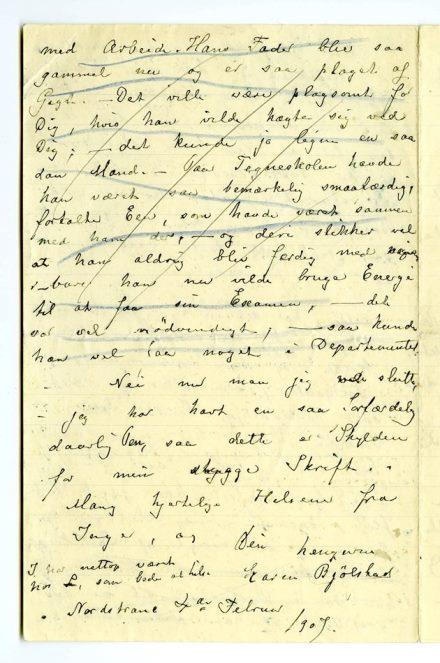 med Arbeide. Hans Fader blir saa
gammel nu og er saa plaget af
Gigt. — Det vilde være plagsomt for
Dig, hvis han vilde hægte sig ved
Dig; — det kunde jo ligne en saa
dan Mand. — Paa Tegneskolen havde
han været saa bemærkelig smaalærdig,
fortalte Een, som havde været sammen
med ham der, — og deri stikker vel
at han aldrig blir færdig med
bare han nu vilde bruge Energi
til at faa sin Examen, — det
var vel nødvendigt, — saa kunde
han vel faa noget i Departementet.
— Nei nu maa jeg slutte,
— jeg har havt en saa forfærdelig
daarlig Pen, saa dette er Skylden
for min stygge Skrift. .
Mang hjertelige Hilsener fra
Inger, og Din hengivne
Karen Bjölstad
I har nettop været
hos L, som bede at hilse
. Nordstrand 4de Februar
1907.